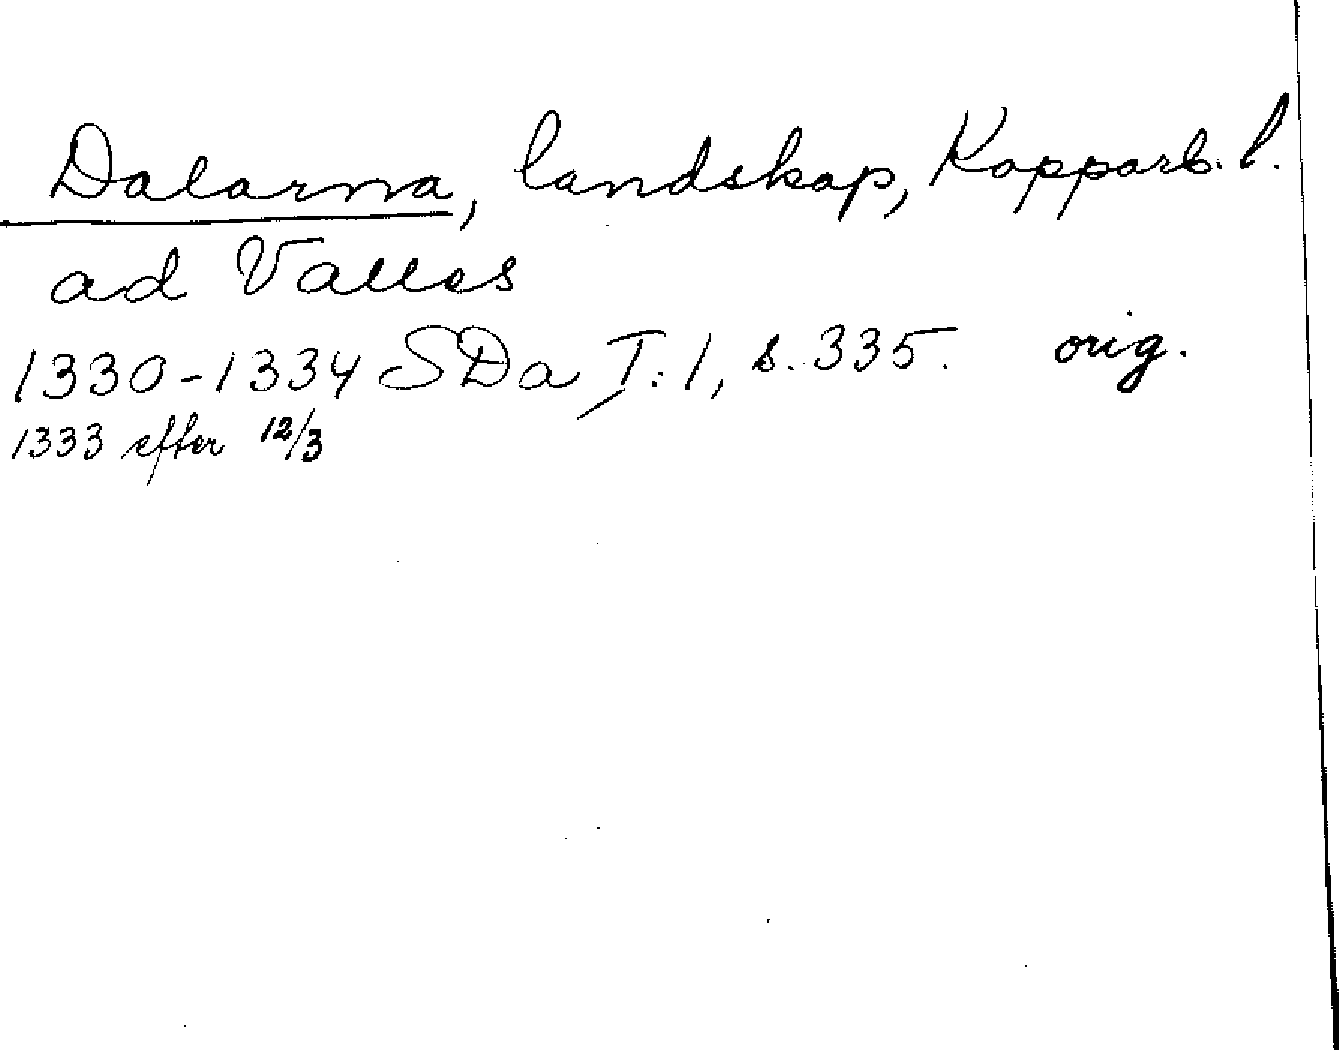 Dalarna, landskap, Kopparb. l.
ad Valles
1330-1334 SDa I:1, s. 335. orig.
1333 efter 12/3